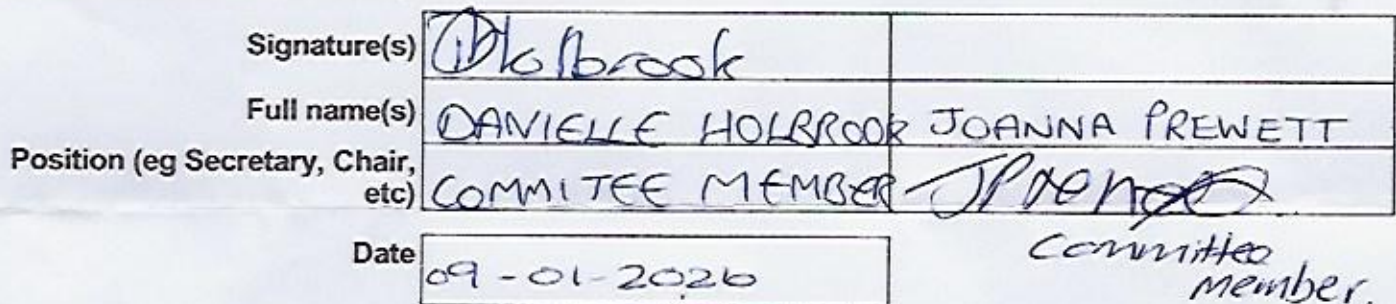 Signature(s) DHolbrook
Full name(s) DANIELLE HOLBROOK JOANNA PREWETT
Position (eg Secretary, Chair,
etc) COMMITEE MEMBER
Date 09-01-2026
Committee
Member.